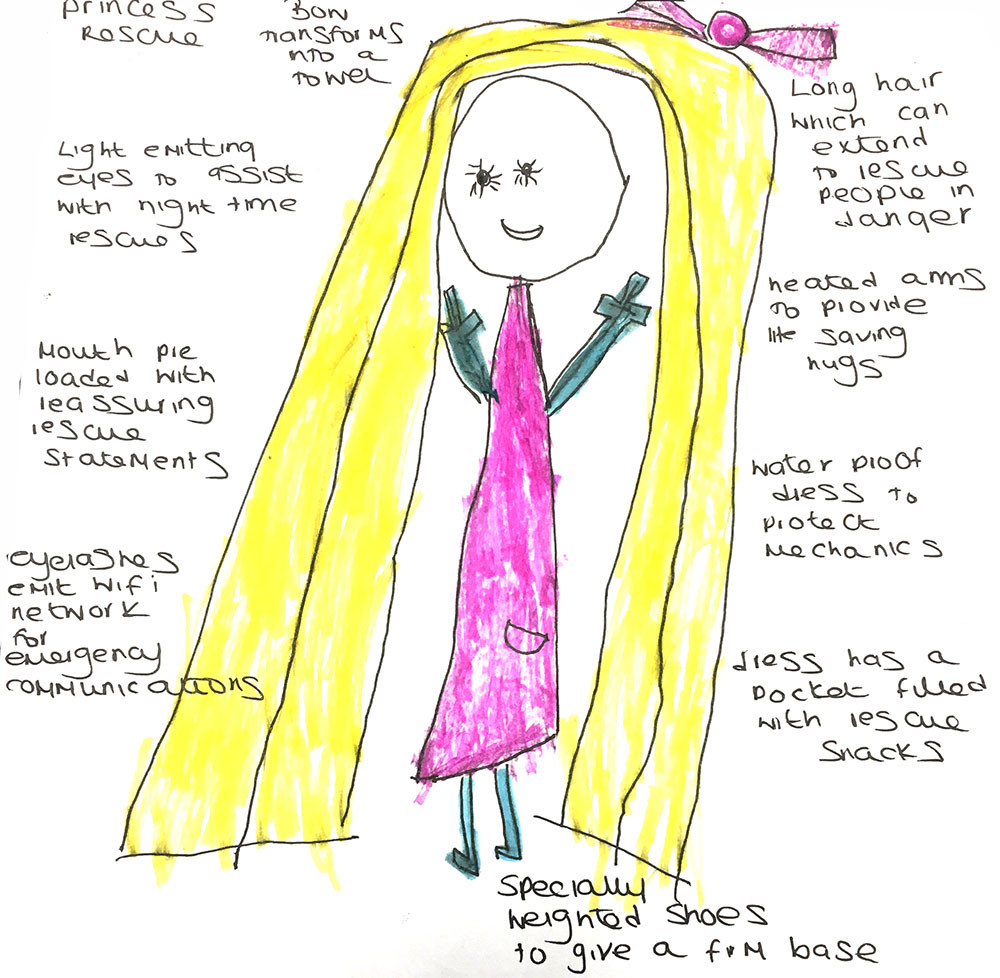 princess
rescue
Bow
transforms
nto a
towel
Light emitting
eyes to assist
with night time
rescues
Mouth pre
loaded with
reassuring
rescue
statements
eyelashes
emit wifi
network
for
emergency
communications
Long hair
which can
extend
to rescue
people in
danger
heated arms
to provide
life saving
hugs
water proof
dress to
protect
mechanics
dress has a
pocket filled
with rescue
snacks
specially
weighted shoes
to give a firm base